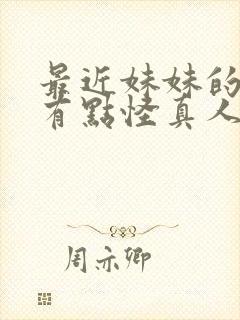 最近妹妹的
有點怪真人
周亦卿